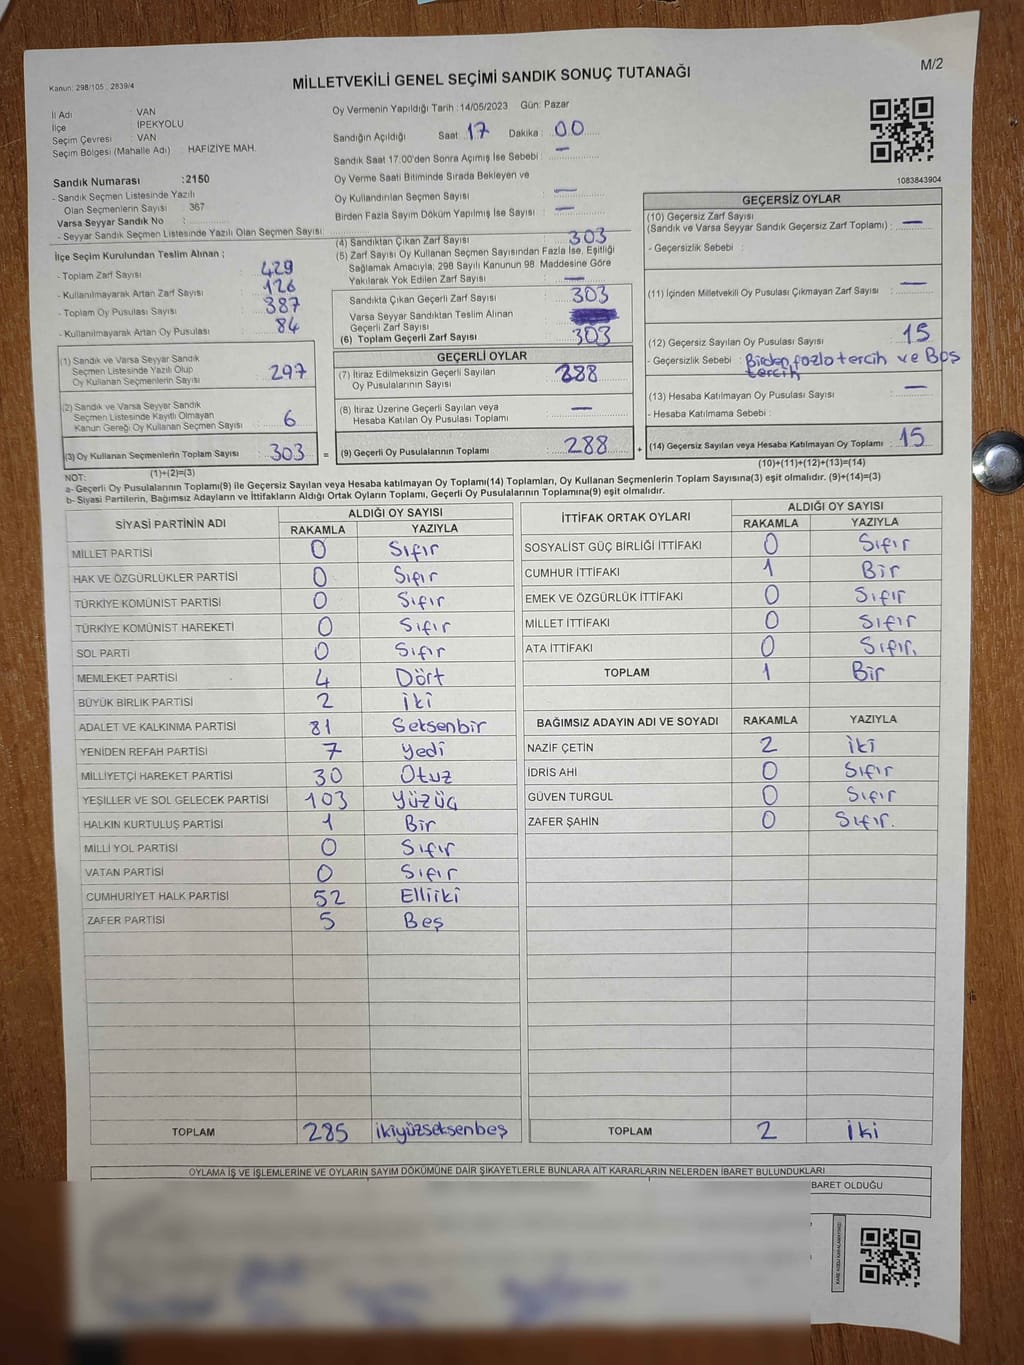 Kanun: 298/105 , 2839/4
MİLLETVEKİLİ GENEL SEÇİMİ SANDIK SONUÇ TUTANAĞI
M/2
İl Adı : VAN
İlçe : İPEKYOLU
Seçim Çevresi : VAN
Seçim Bölgesi (Mahalle Adı) HAFIZİYE MAH.
Sandık Numarası :2150
- Sandık Seçmen Listesinde Yazılı
Olan Seçmenlerin Sayısı : 367
Varsa Seyyar Sandık No :
- Seyyar Sandık Seçmen Listesinde Yazılı Olan Seçmen Sayısı:
Oy Vermenin Yapıldığı Tarih :14/05/2023 Gün: Pazar
Sandığın Açıldığı Saat: 17 Dakika : 00
Sandık Saat 17:00'den Sonra Açımış İse Sebebi : —
Oy Verme Saati Bitiminde Sırada Bekleyen ve
Oy Kullandırılan Seçmen Sayısı : —
Birden Fazla Sayım Döküm Yapılmış İse Sayısı : —
1083843904
İlçe Seçim Kurulundan Teslim Alınan ;
- Toplam Zarf Sayısı : 429
- Kullanılmayarak Artan Zarf Sayısı : 126
- Toplam Oy Pusulası Sayısı : 387
- Kullanılmayarak Artan Oy Pusulası : 84
(1) Sandık ve Varsa Seyyar Sandık
Seçmen Listesinde Yazılı Olup
Oy Kullanan Seçmenlerin Sayısı : 297
(2) Sandık ve Varsa Seyyar Sandık
Seçmen Listesinde Kayıtlı Olmayan
Kanun Gereği Oy Kullanan Seçmen Sayısı : 6
(3) Oy Kullanan Seçmenlerin Toplam Sayısı : 303 =
(1)+(2)=(3)
(4) Sandıktan Çıkan Zarf Sayısı : 303
(5) Zarf Sayısı Oy Kullanan Seçmen Sayısından Fazla İse, Eşitliği
Sağlamak Amacıyla, 298 Sayılı Kanunun 98. Maddesine Göre
Yakılarak Yok Edilen Zarf Sayısı : —
Sandıkta Çıkan Geçerli Zarf Sayısı : 303
Varsa Seyyar Sandıktan Teslim Alınan
Geçerli Zarf Sayısı :
(6) Toplam Geçerli Zarf Sayısı : 303
GEÇERLİ OYLAR
(7) İtiraz Edilmeksizin Geçerli Sayılan
Oy Pusulalarının Sayısı : 288
(8) İtiraz Üzerine Geçerli Sayılan veya
Hesaba Katılan Oy Pusulası Toplamı : —
(9) Geçerli Oy Pusulalarının Toplamı : 288 +
GEÇERSİZ OYLAR
(10) Geçersiz Zarf Sayısı
(Sandık ve Varsa Seyyar Sandık Geçersiz Zarf Toplamı) : —
- Geçersizlik Sebebi :
(11) İçinden Milletvekili Oy Pusulası Çıkmayan Zarf Sayısı : —
(12) Geçersiz Sayılan Oy Pusulası Sayısı : 15
- Geçersizlik Sebebi : Birden fazla tercih ve Boş
tercih
(13) Hesaba Katılmayan Oy Pusulası Sayısı : —
- Hesaba Katılmama Sebebi :
(14) Geçersiz Sayılan veya Hesaba Katılmayan Oy Toplamı : 15
(10)+(11)+(12)+(13)=(14)
NOT:
a- Geçerli Oy Pusulalarının Toplamı(9) ile Geçersiz Sayılan veya Hesaba Katılmayan Oy Toplamı(14) Toplamları, Oy Kullanan Seçmenlerin Toplam Sayısına(3) eşit olmalıdır. (9)+(14)=(3)
b- Siyasi Partilerin, Bağımsız Adayların ve İttifakların Aldığı Ortak Oyların Toplamı, Geçerli Oy Pusulalarının Toplamına(9) eşit olmalıdır.
SİYASİ PARTİNİN ADI ALDIĞI OY SAYISI
RAKAMLA YAZIYLA
MİLLET PARTİSİ 0 Sıfır
HAK VE ÖZGÜRLÜKLER PARTİSİ 0 Sıfır
TÜRKİYE KOMÜNİST PARTİSİ 0 Sıfır
TÜRKİYE KOMÜNİST HAREKETİ 0 Sıfır
SOL PARTİ 0 Sıfır
MEMLEKET PARTİSİ 4 Dört
BÜYÜK BİRLİK PARTİSİ 2 iki
ADALET VE KALKINMA PARTİSİ 81 Seksenbir
YENİDEN REFAH PARTİSİ 7 Yedi
MİLLİYETÇİ HAREKET PARTİSİ 30 Otuz
YEŞİLLER VE SOL GELECEK PARTİSİ 103 Yüzüç
HALKIN KURTULUŞ PARTİSİ 1 Bir
MİLLİ YOL PARTİSİ 0 Sıfır
VATAN PARTİSİ 0 Sıfır
CUMHURİYET HALK PARTİSİ 52 Elliiki
ZAFER PARTİSİ 5 Beş
TOPLAM 285 ikiyüzseksenbeş
İTTİFAK ORTAK OYLARI ALDIĞI OY SAYISI
RAKAMLA YAZIYLA
SOSYALİST GÜÇ BİRLİĞİ İTTİFAKI 0 Sıfır
CUMHUR İTTİFAKI 1 Bir
EMEK VE ÖZGÜRLÜK İTTİFAKI 0 Sıfır
MİLLET İTTİFAKI 0 Sıfır
ATA İTTİFAKI 0 Sıfır.
TOPLAM 1 Bir
BAĞIMSIZ ADAYIN ADI VE SOYADI RAKAMLA YAZIYLA
NAZİF ÇETİN 2 iki
İDRİS AHİ 0 Sıfır
GÜVEN TURGUL 0 Sıfır
ZAFER ŞAHİN 0 Sıfır.
TOPLAM 2 iki
OYLAMA İŞ VE İŞLEMLERİNE VE OYLARIN SAYIM DÖKÜMÜNE DAİR ŞİKAYETLERLE BUNLARA AİT KARARLARIN NELERDEN İBARET BULUNDUKLARI
BARET OLDUĞU